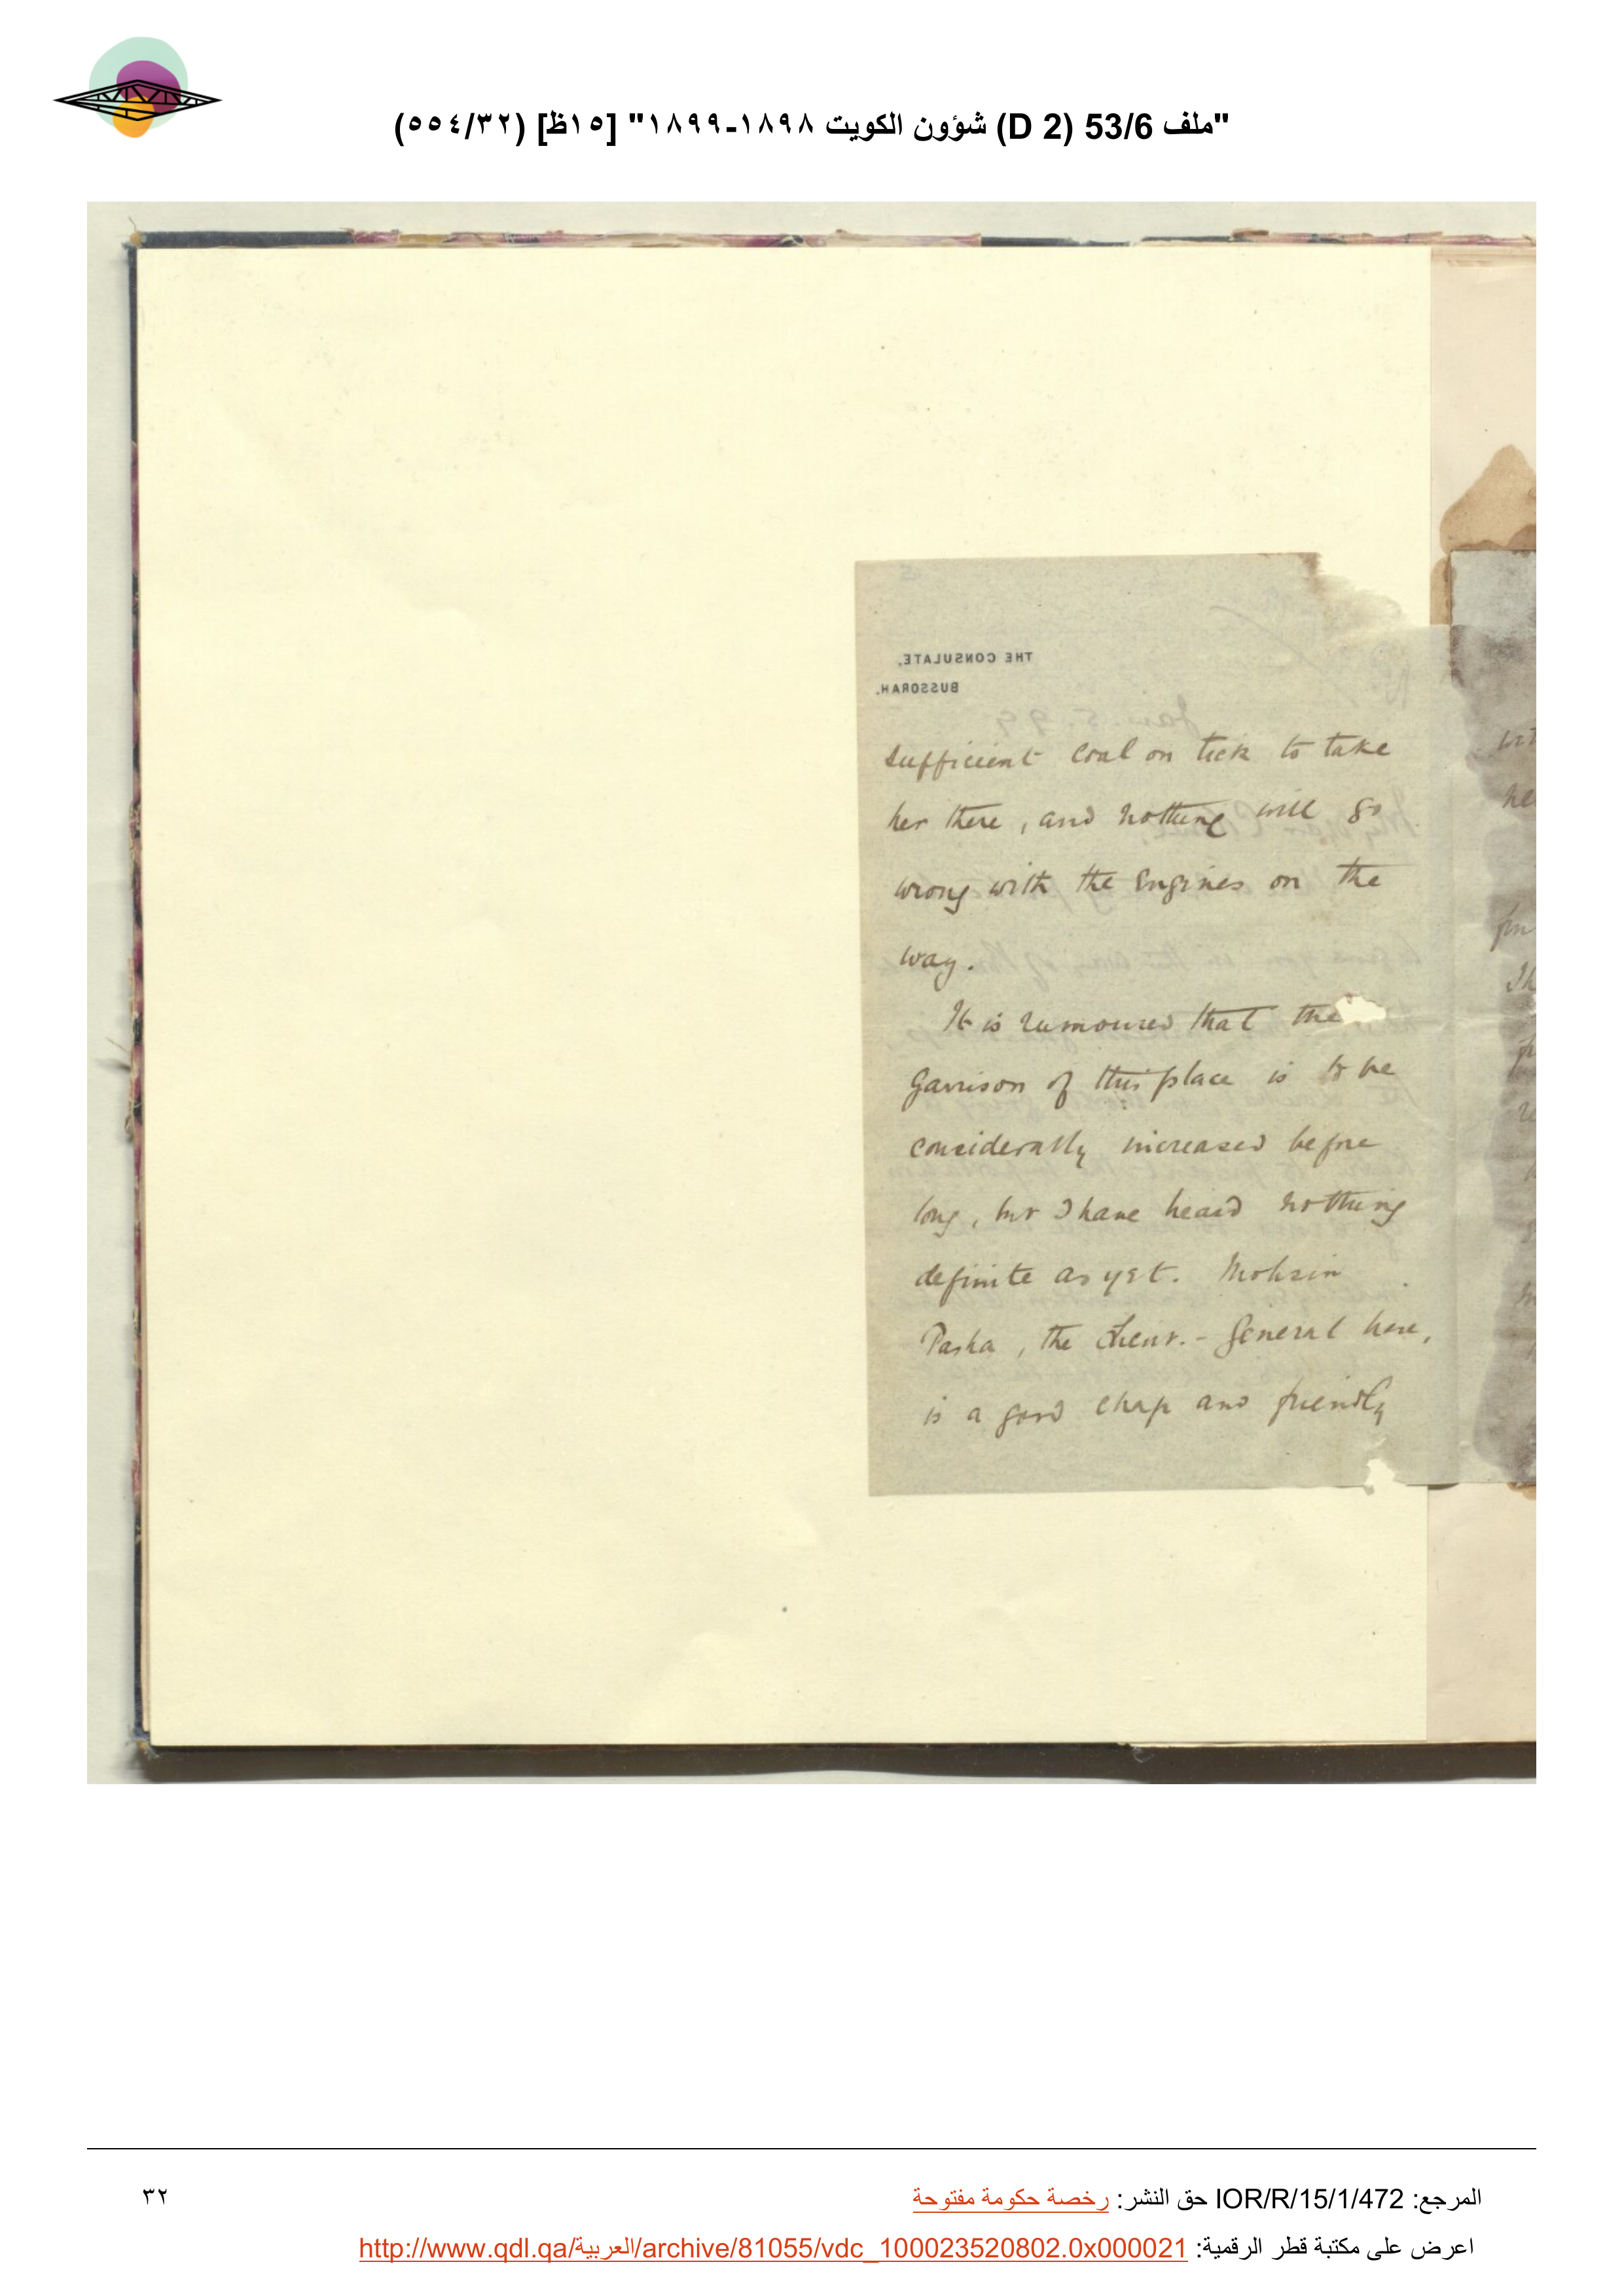 "ملف 53/6 (D 2) شؤون الكويت ١٨٩٨-١٨٩٩" [١٥ظ] (٥٥٤/٣٢)
THE CONSULATE,
BUSSORAH.
Jan. 5. 99
sufficient coal on tick to take
her there, and nothing will go
wrong with the Engines on the
way.
It is rumoured that the
Garrison of this place is to be
considerably increased before
long, but I have heard nothing
definite as yet. Mohsin
Pasha, the Lieut.-General here,
is a good chap and friendly
المرجع: IOR/R/15/1/472 حق النشر: رخصة حكومة مفتوحة
٣٢
اعرض على مكتبة قطر الرقمية: http://www.qdl.qa/العربية/archive/81055/vdc_100023520802.0x000021